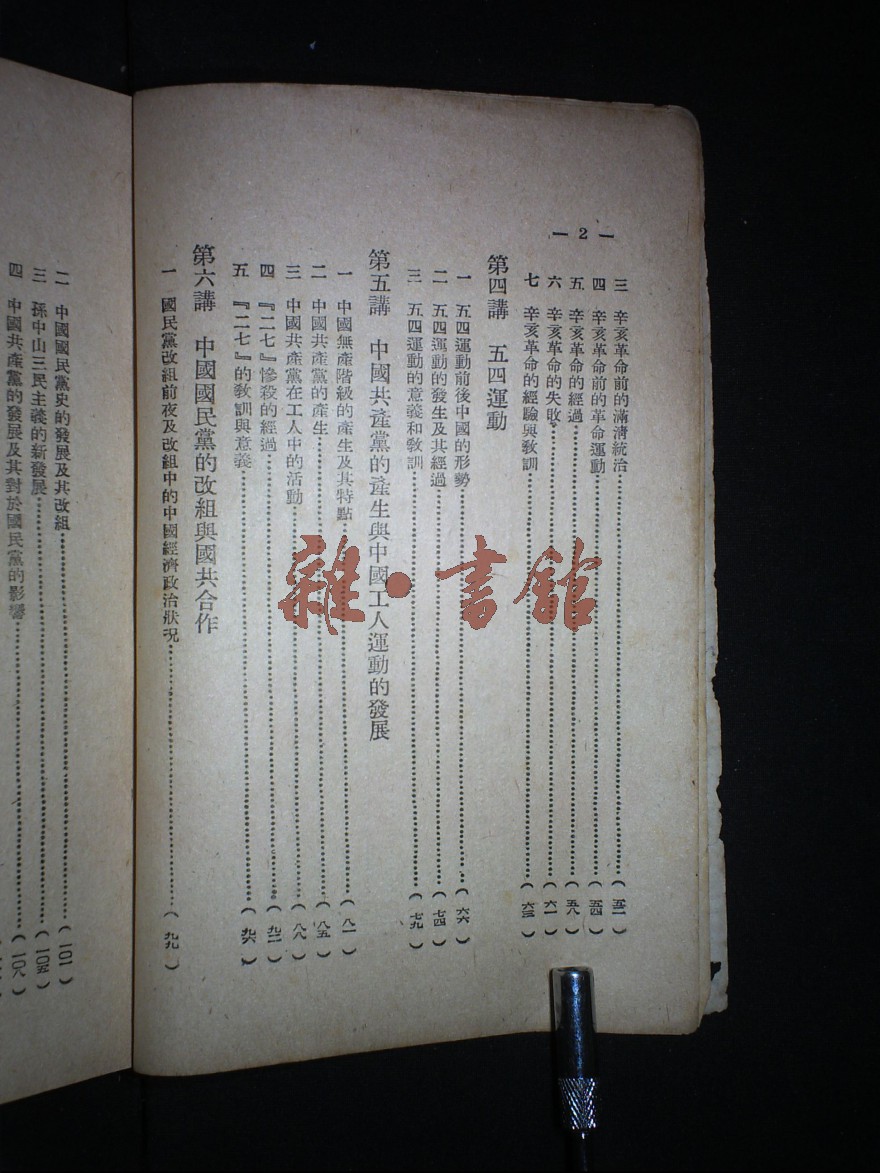 — 2 —
三 辛亥革命前的滿清統治（五一）
四 辛亥革命前的革命運動（五四）
五 辛亥革命的經過（五八）
六 辛亥革命的失敗（六一）
七 辛亥革命的經驗與敎訓（六三）
第四講 五四運動
一 五四運動前後中國的形勢（六六）
二 五四運動的發生及其經過（七四）
三 五四運動的意義和敎訓（七九）
第五講 中國共產黨的產生與中國工人運動的發展
一 中國無產階級的產生及其特點（八一）
二 中國共產黨的產生（八五）
三 中國共產黨在工人中的活動（八八）
四 『二七』慘殺的經過（九二）
五 『二七』的敎訓與意義（九六）
第六講 中國國民黨的改組與國共合作
一 國民黨改組前夜及改組中的中國經濟政治狀況（九九）
二 中國國民黨史的發展及其改組（一〇一）
三 孫中山三民主義的新發展（一〇五）
四 中國共產黨的發展及其對於國民黨的影響（一〇八）
雜·書館